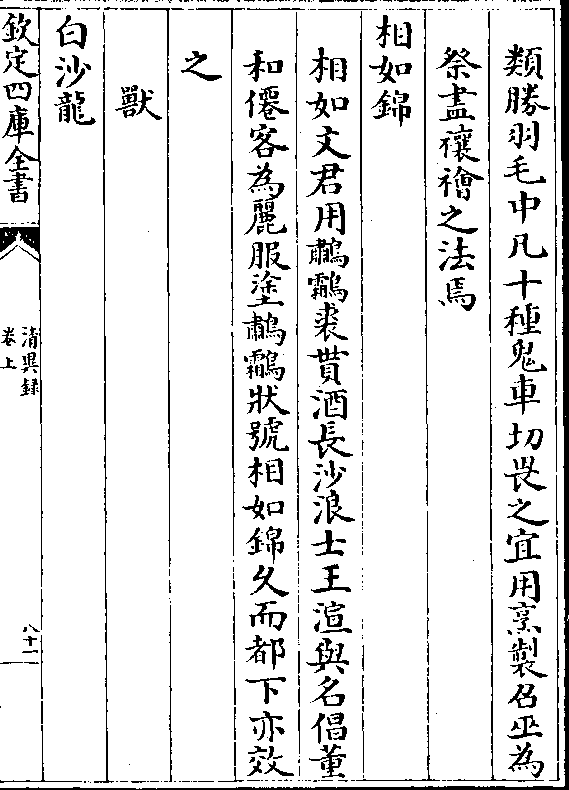 類勝羽毛中凡十種鬼車切畏之宜用烹製召巫為
祭盡禳禬之法焉
相如錦
相如文君用鷫鸘裘貰酒長沙浪士王渲與名倡董
和僊客為麗服塗鷫鸘狀號相如錦久而都下亦效
之
獸
白沙龍
欽定四庫全書
清異録
卷上
八十一